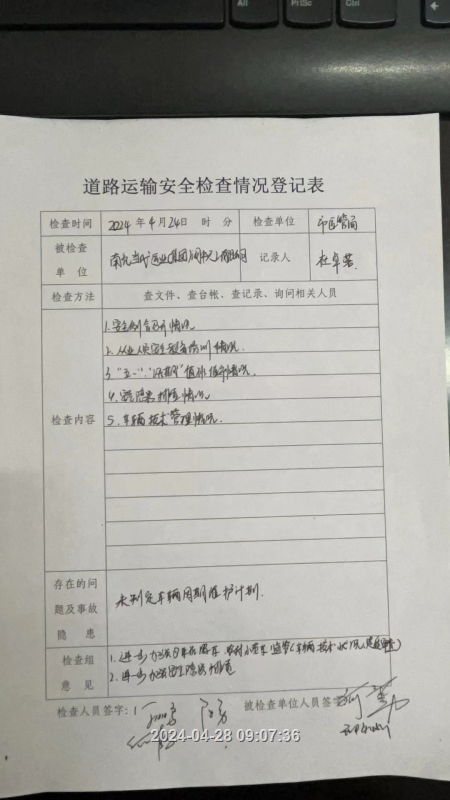 Alt
PrtSc
Ctrl
道路运输安全检查情况登记表
检查时间 2024 年 4 月 24 日 时 分 检查单位 市区管局
被检查单位 南充当代运业(集团)阆中 记录人 杜卓
检查方法 查文件、查台帐、查记录、询问相关人员
检查内容
1. 安全例会召开情况.
2. 从业人员安全教育培训情况.
3. "五一"、"汛期"值班值守情况.
4. 安全隐患排查情况.
5. 车辆技术管理情况.
存在的问题及事故隐患
未制定车辆周期维护计划.
检查组意见
1. 进一步加强 车、农村小客车监管(车辆技术状况
2. 进一步加强安全隐患排查
检查人员签字: 被检查单位人员签字
2024-04-28 09:07:36